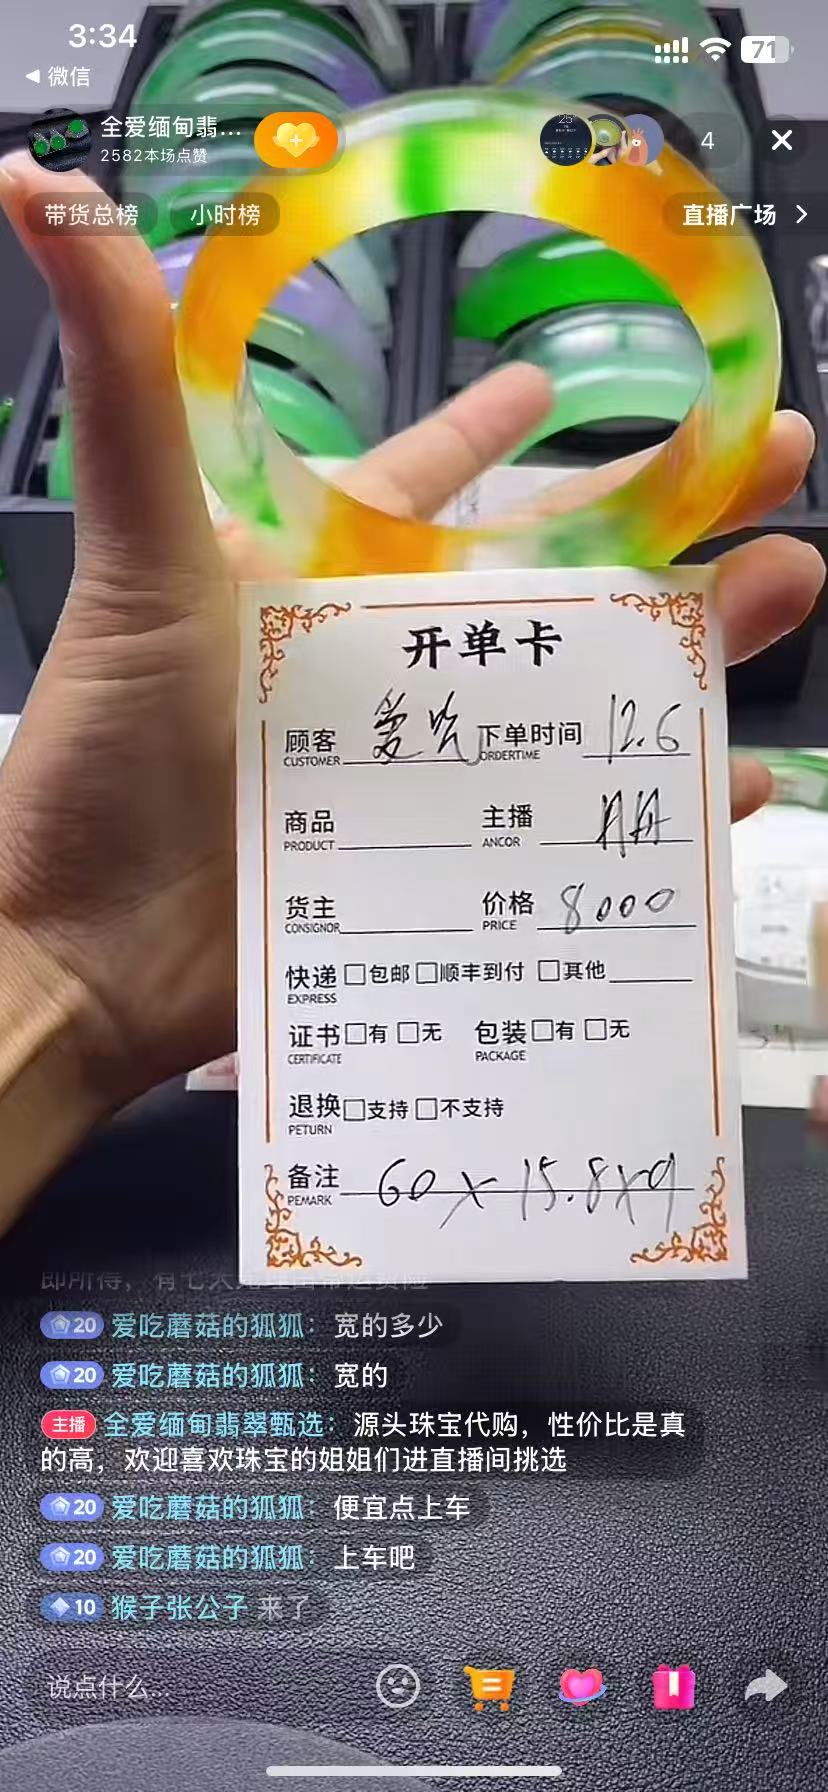 3:34
71
微信
全爱缅甸翡...
2582本场点赞
4
带货总榜
小时榜
直播广场
开单卡
顾客 爱吃 下单时间 12.6
CUSTOMER ORDERTIME
商品 主播
PRODUCT ANCOR
货主 价格 8000
CONSIGNOR PRICE
快递 包邮 顺丰到付 其他
EXPRESS
证书 有 无 包装 有 无
CERTIFICATE PACKAGE
退换 支持 不支持
PETURN
备注 60×15.8×9
PEMARK
20 爱吃蘑菇的狐狐：宽的多少
20 爱吃蘑菇的狐狐：宽的
主播 全爱缅甸翡翠甄选：源头珠宝代购，性价比是真
的高，欢迎喜欢珠宝的姐姐们进直播间挑选
20 爱吃蘑菇的狐狐：便宜点上车
20 爱吃蘑菇的狐狐：上车吧
10 猴子张公子 来了
说点什么...